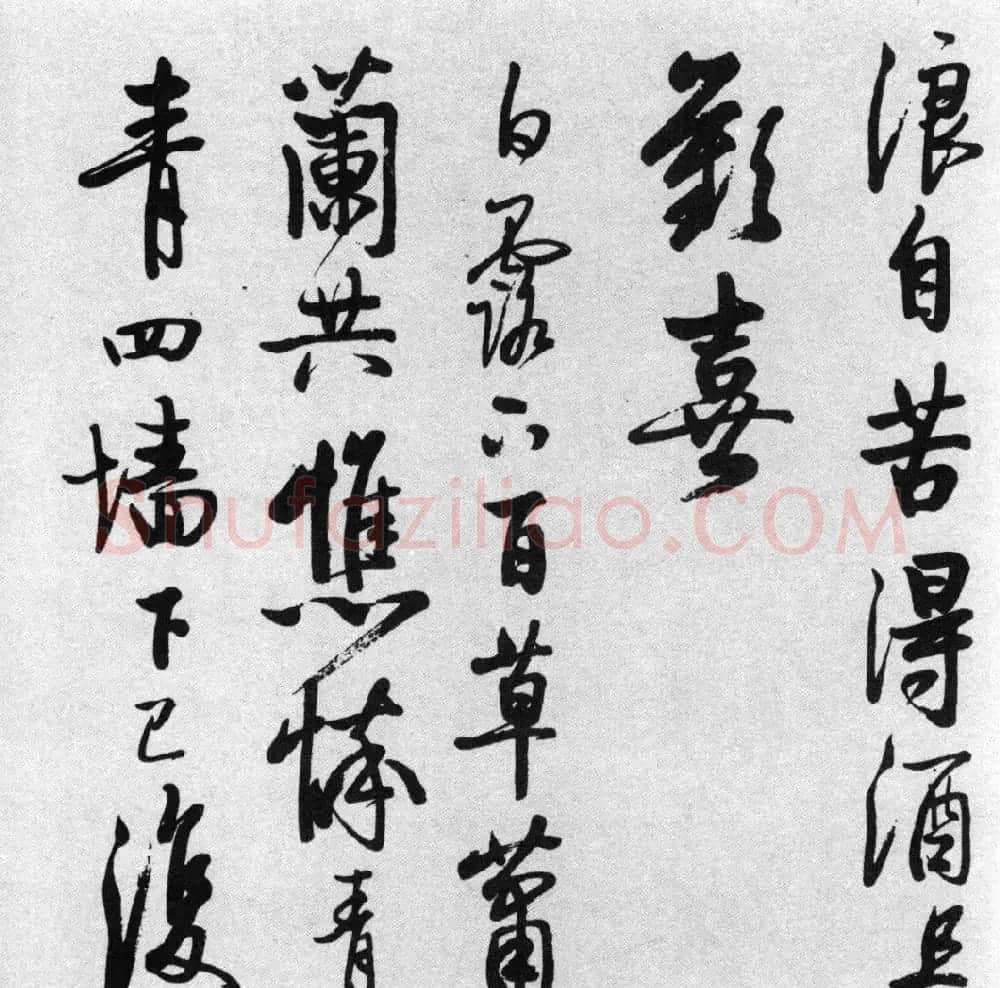 浪自苦得酒且
歡喜
白露下百草蕭
蘭共憔悴青
青四墻下已復
Shufaziliao.COM